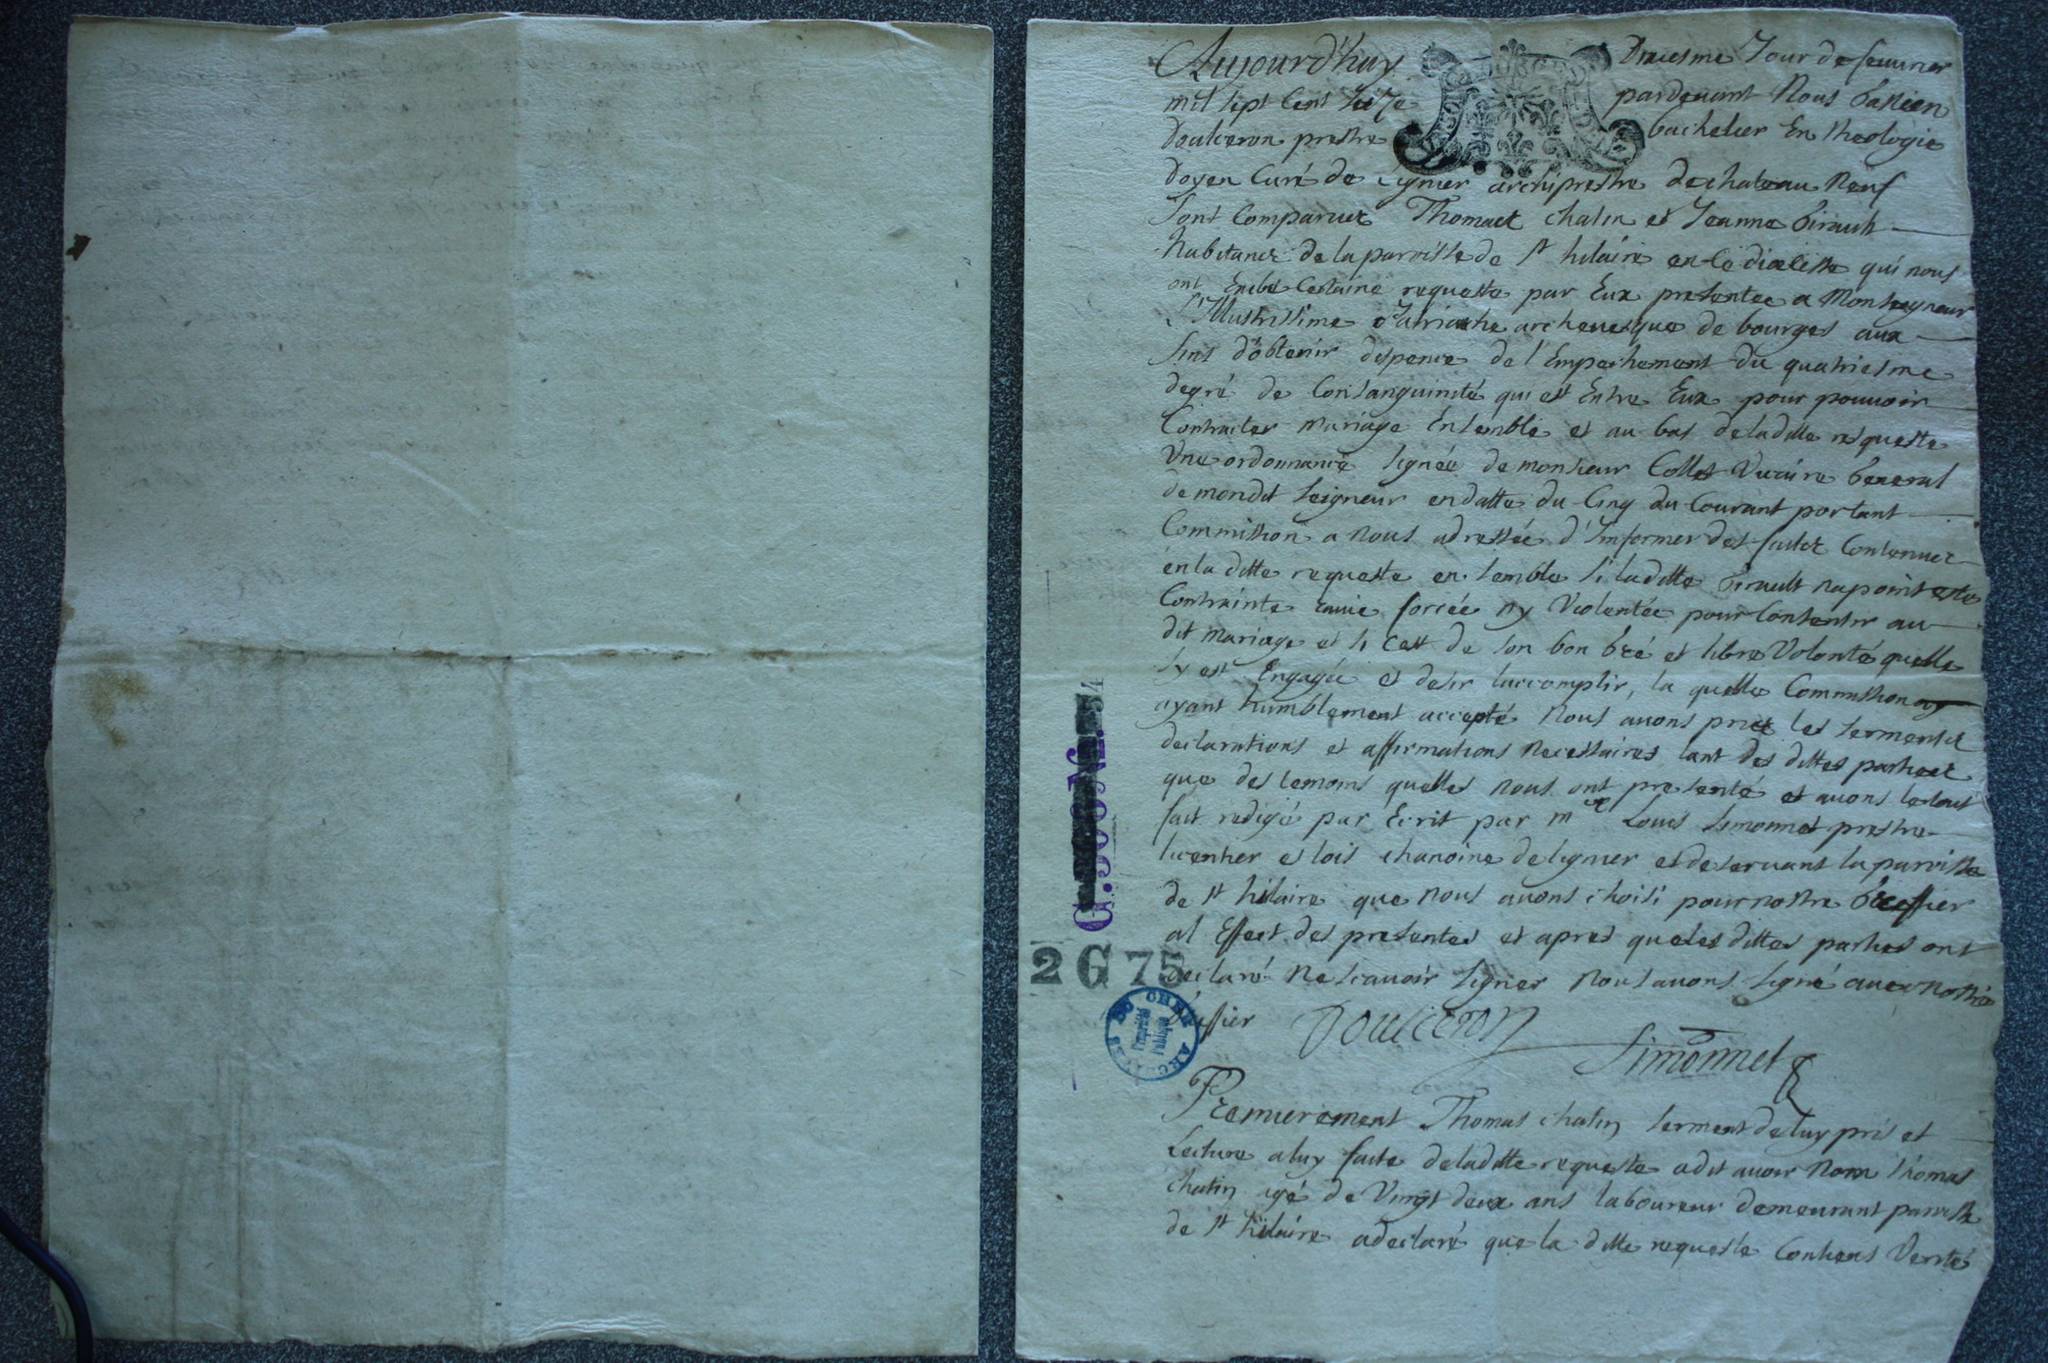 Aujourd'huy dixiesme Jour de feuvrier
mil sept Cent seize pardevant Nous
Doulceron prestre bachelier En theologie
doyen Curé de Ligner archiprestre de chateau Neuf
sont Comparuez Thomaet Chalin et Jeanne Girault
habitanez de la paroisse de st hilaire en ce diocesse qui nous
ont Exibé Certaine requeste par Eux presentee a Monseigneur
l'Illustrissime Patriarche archeuesque de bourges aux
fins d'obtenir dispence de l'Empechement du quatriesme
degré de Consanguinité qui est Entre Eux pour pouuoir
Contracter mariage Ensemble et au bas de la ditte requeste
Une ordonnance signée de monsieur Collet Vicaire General
de mondit seigneur en datte du Cinq du Courant portant
Commission a nous adressée d'Jnformer des faitez Contenuez
en la ditte requeste ensemble si la ditte Girault na point este
Contrainte rauie forcée ny Violentée pour Consentir au
dit mariage et si Cest de son bon Gré et libre Volonté quelle
sy est Engagée et desir laccomplir, la quelle Commission
ayant humblement accepté Nous auons pris les sermentez
declarations et affirmations Necessaires tant des dittes partiez
que des temoins quelles nous ont presenté et auons le tout
fait redigé par Ecrit par mre Louis Simonnet prestre
licentier es lois chanoine de ligner et deseruant la paroisse
de st hilaire que nous auons choisi pour nostre Greffier
al Effect des presentes et apres que les dittes parties ont
declaré Ne scauoir signer Nous auons signé auec nostre
Greffier Doulceron
Simonnet
Premierement Thomas Chalin serment de luy pris et
Lecture a luy faite de la ditte requeste a dit auoir Nom thomas
Chalin agé de Vingt deux ans laboureur demeurant paroisse
de st hilaire a declaré que la ditte requeste Contient Verité
2 G 75
ARCHIVES DU CHER
Propriété
Publique